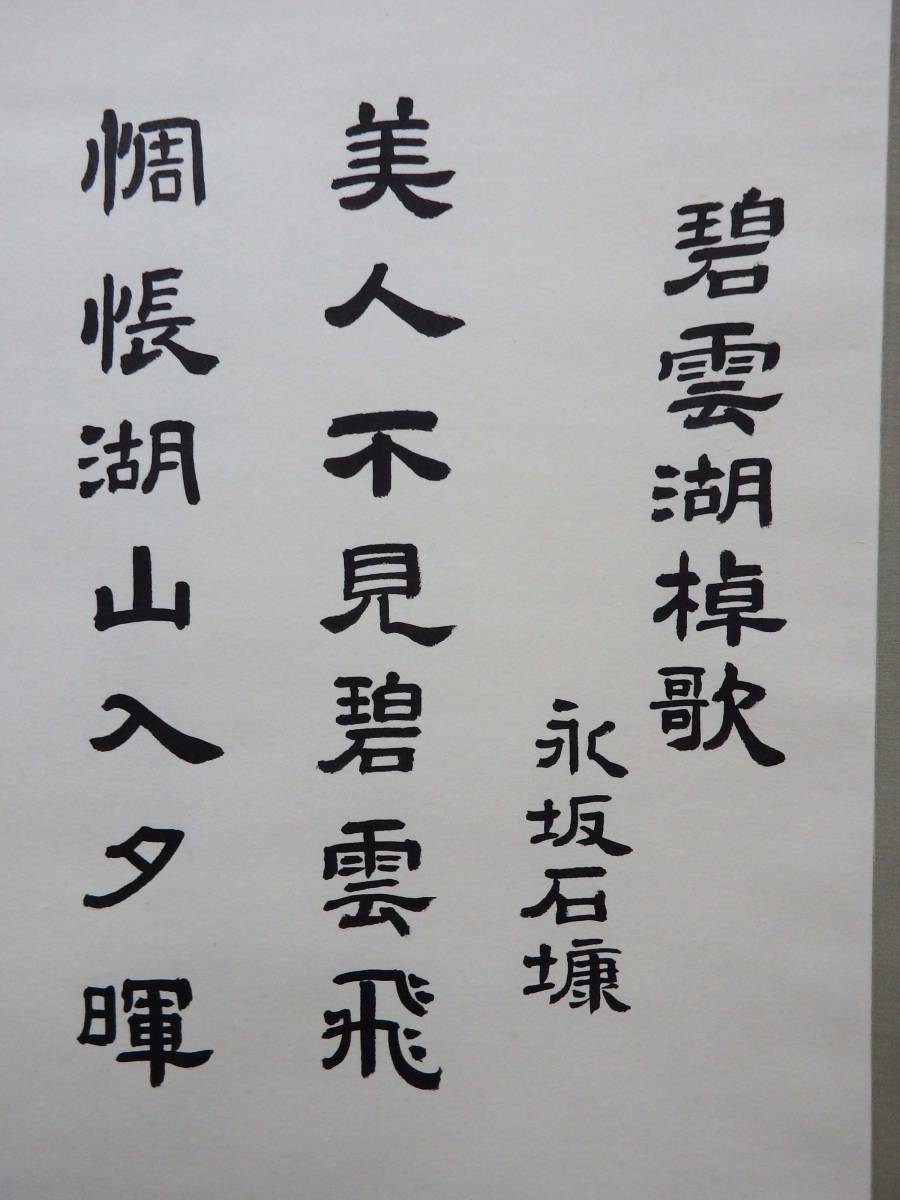 碧雲湖棹歌
永坂石墉
美人不見碧雲飛
惆悵湖山入夕暉